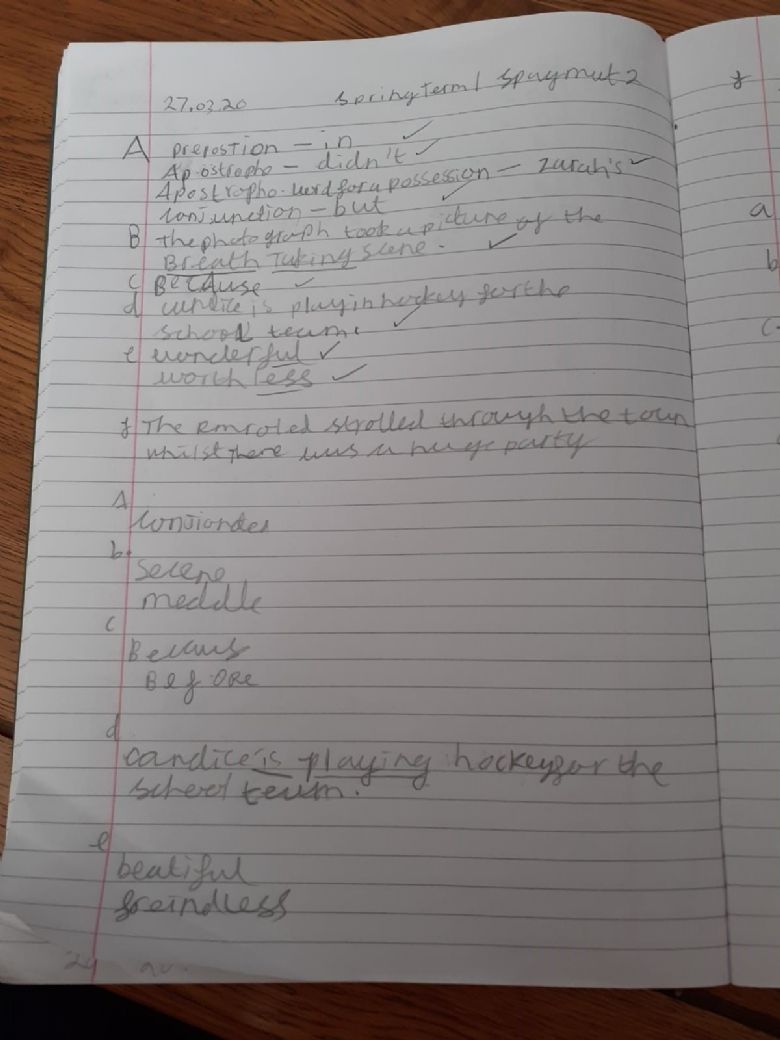 27.03.20 Spring term 1 Spag mat 2
A prepostion - in ✓
Apostrophe - didn't ✓
Apostropho used for a possession - zarah's ✓
Conjunction - but ✓
B the photograph took a picture of the
Breath Taking scene. ✓
C Because ✓
d candice is playin hockey for the
school team. ✓
e wonderful ✓
worthless ✓
f The strolled through the town
whilst there was a huge party
A
b.
Secene
meddle
c
Becaus
BefORe
d
candice is playing hockey for the
school team.
e
beatiful
freindless
f
a
b
c